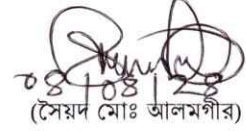 ০৪/০৪/২৪
(সৈয়দ মোঃ আলমগীর)